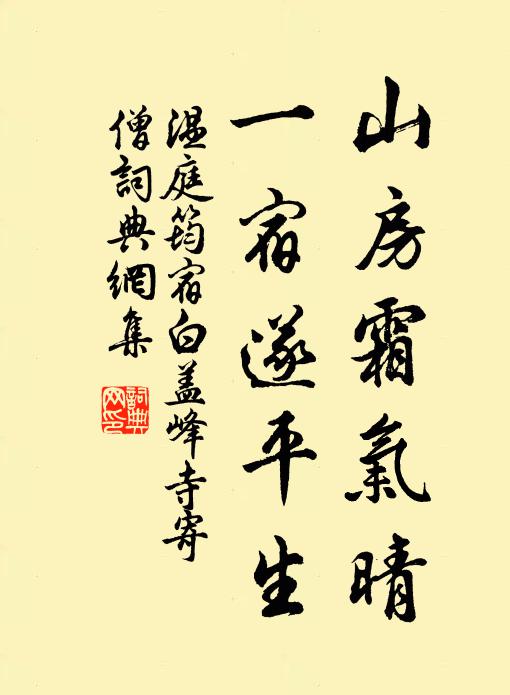 山房霜氣晴
一宿遂平生
溫庭筠宿白盖峰寺寄
僧詞典網集
詞典
网印